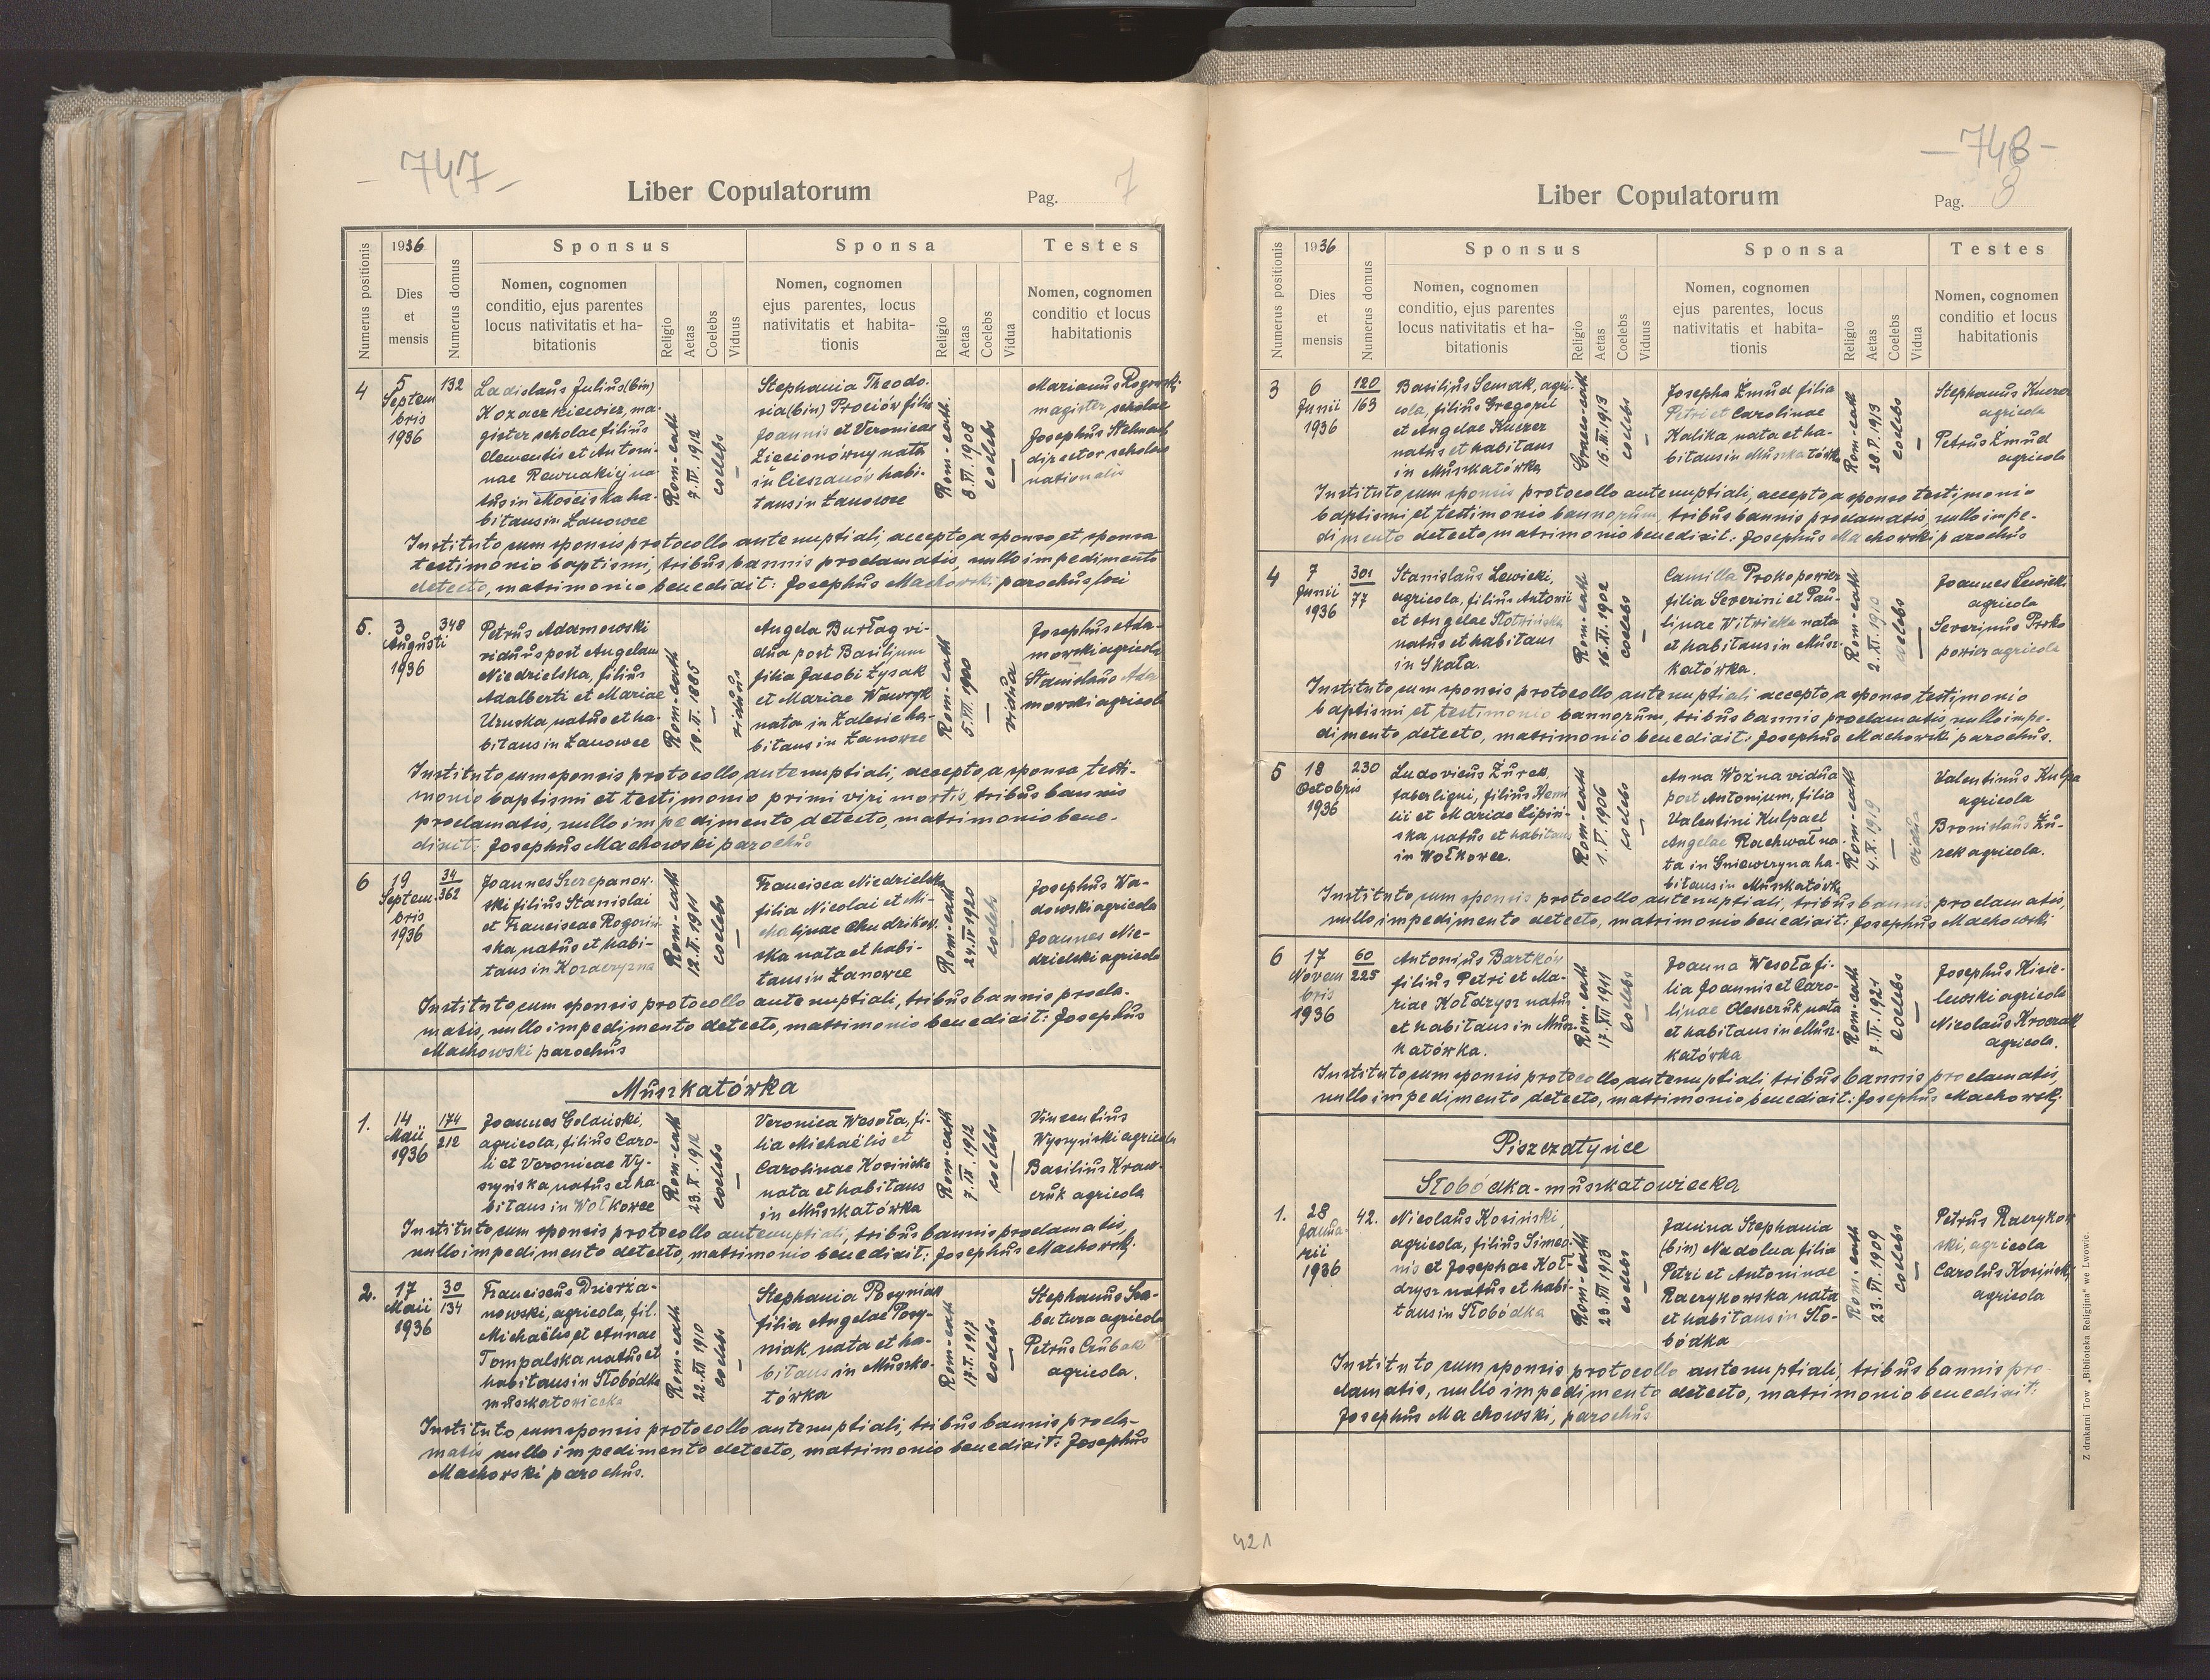 - 747 -
Liber Copulatorum
Pag. 7
Numerus positionis
1936
Dies
et
mensis
Numerus domus
Sponsus
Nomen, cognomen
conditio, ejus parentes
locus nativitatis et ha-
bitationis
Religio
Aetas
Coelebs
Viduus
Sponsa
Nomen, cognomen
ejus parentes, locus
nativitatis et habita-
tionis
Religio
Aetas
Coelebs
Vidua
Testes
Nomen, cognomen
conditio et locus
habitationis
4
5
Septem
bris
1936
132
Ladislaus Julius (bin)
Kozaczkiewicz, ma-
gister scholae filius
Clementis et Antoni-
nae Rewnakiej na-
tus in Mościska ha-
bitans in Łanowce
Rom-cath
7.IV.1912
coelebs
—
Stephania Theodo-
sia (bin) Prociów filia
Joannis et Veronicae
Ziecionowny nata
in Cieszanów habi-
tans in Łanowce
Rom-cath.
8.VI.1908
coelebs
—
Marianus Rogowski
magister scholae
Josephus Stelmach
director scholae
nationalis
Instituto cum sponsis protocollo antenuptiali, accepto a sponso et sponsa
testimonio baptismi, tribus bannis proclamatis, nullo impedimento
detecto, matrimonio benedixit: Josephus Machowski parochus loci
5.
3
Augusti
1936
348
Petrus Adamowski
viduus post Angelam
Niedzielska, filius
Adalberti et Mariae
Uruska natus et ha-
bitans in Łanowce
Rom-cath
19.II.1885
—
viduus
Angela Burtag vi-
dua post Basilium
filia Jacobi Łysak
et Mariae Wawryk
nata in Zalesie ha-
bitans in Łanowce
Rom-cath
5.III.1900
—
vidua
Josephus Ada-
mowski agricola
Stanislaus Ada-
mowski agricola
Instituto cum sponsis protocollo antenuptiali, accepto a sponsa testi-
monio baptismi et testimonio primi viri mortis, tribus bannis
proclamatis, nullo impedimento detecto, matrimonio bene-
dixit: Josephus Machowski parochus
6
19
Septem
bris
1936
34
362
Joannes Szczepanow-
ski filius Stanislai
et Franciscae Rogoziń-
ska natus et habi-
tans in Kozaczyzna
Rom-cath
12.II.1911
coelebs
—
Francisca Niedzielska
filia Nicolai et Mi-
chalinae Chudzikow-
ska nata et habi-
tans in Łanowce
Rom-cath
24.IV.1920
coelebs
—
Josephus Wa-
dowski agricola
Joannes Nie-
dzielski agricola
Instituto cum sponsis protocollo antenuptiali, tribus bannis procla-
matis, nullo impedimento detecto, matrimonio benedixit: Josephus
Machowski parochus
Muszkatówka
1.
14
Maii
1936
174
212
Joannes Golański,
agricola, filius Caro-
li et Veronicae Wy-
szyńska, natus et ha-
bitans in Wołkowce
Rom-cath
23.V.1912
coelebs
—
Veronica Wesoła, fi-
lia Michaëlis et
Carolinae Kosińska
nata et habitans
in Muszkatówka
Rom-cath
7.IX.1912
coelebs
—
Vincentius
Wyszyński agricola
Basilius Kraw-
czuk agricola
Instituto cum sponsis protocollo antenuptiali, tribus bannis proclamatis,
nullo impedimento detecto, matrimonio benedixit: Josephus Machowski.
2.
17
Maii
1936
30
134
Franciscus Dzierża-
nowski, agricola, fil.
Michaëlis et Annae
Tompalska natus et
habitans in Słobódka
muszkatowiecka
Rom-cath
22.XII.1910
coelebs
—
Stephania Posyniak
filia Angelae Posy-
niak nata et ha-
bitans in Muszka-
tówka
Rom-cath
17.I.1917
coelebs
—
Stephanus Sza-
batura agricola
Petrus Czubak
agricola.
Instituto cum sponsis protocollo antenuptiali, tribus bannis procla-
matis nullo impedimento detecto, matrimonio benedixit: Josephus
Machowski parochus.
- 748 -
Liber Copulatorum
Pag. 8
Numerus positionis
1936
Dies
et
mensis
Numerus domus
Sponsus
Nomen, cognomen
conditio, ejus parentes
locus nativitatis et ha-
bitationis
Religio
Aetas
Coelebs
Viduus
Sponsa
Nomen, cognomen
ejus parentes, locus
nativitatis et habita-
tionis
Religio
Aetas
Coelebs
Vidua
Testes
Nomen, cognomen
conditio et locus
habitationis
3
6
Junii
1936
120
163
Basilius Semak, agri-
cola, filius Gregorii
et Angelae Kuczer
natus et habitans
in Muszkatówka
Graeco-cath
16.III.1913
coelebs
—
Josepha Żmud filia
Petri et Carolinae
Kalika nata et ha-
bitans in Muszkatówka
Rom-cath
28.V.1913
coelebs
—
Stephanus Kuczer
agricola
Petrus Żmud
agricola
Instituto cum sponsis protocollo antenuptiali, accepto a sponso testimonio
baptismi et testimonio bannorum, tribus bannis proclamatis, nullo impe-
dimento detecto matrimonio benedixit: Josephus Machowski parochus
4
7
Junii
1936
301
77
Stanislaus Lewicki,
agricola, filius Antonii
et Angelae Słotwińska
natus et habitans
in Skała.
Rom-cath
16.XI.1902
coelebs
—
Camilla Prokopowicz
filia Severini et Pau-
linae Witwicka nata
et habitans in Musz-
katówka.
Rom-cath
2.XI.1910
coelebs
—
Joannes Lewicki
agricola
Severinus Proko
powicz agricola
Instituto cum sponsis protocollo antenuptiali accepto a sponso testimonio
baptismi et testimonio bannorum, tribus bannis proclamatis, nullo impe-
dimento detecto, matrimonio benedixit: Josephus Machowski parochus.
5
18
Octobris
1936
230
Ludovicus Żurek,
faber ligni, filius Kami
lii et Mariae Lipiń-
ska natus et habitans
in Wołkowce.
Rom-cath
1.V.1906
coelebs
—
Anna Woźna vidua
post Antonium, filia
Valentini Kulpa et
Angelae Rachwał na-
ta in Gniewczyna ha-
bitans in Muszkatówka
Rom-cath
4.X.1919
—
vidua
Valentinus Kulpa
agricola
Bronislaus Żu-
rek agricola.
Instituto cum sponsis protocollo antenuptiali, tribus bannis proclamatis,
nullo impedimento detecto, matrimonio benedixit: Josephus Machowski
6
17
Novem
bris
1936
60
225
Antonius Bartków
filius Petri et Ma-
riae Kołdrysz natus
et habitans in Musz-
katówka.
Rom-cath
17.VII.1911
coelebs
—
Joanna Wesoła fi-
lia Joannis et Caro-
linae Olenczuk nata
et habitans in Musz-
katówka
Rom-cath
7.IV.1921
coelebs
—
Josephus Kisie-
lewski agricola
Nicolaus Kroczak
agricola.
Instituto cum sponsis protocollo antenuptiali tribus bannis proclamatis,
nullo impedimento detecto, matrimonio benedixit: Josephus Machowski.
Piszczatynce
Słobódka-muszkatowiecka
1.
28
Janua-
rii
1936
42.
Nicolaus Kosiński,
agricola, filius Simeo-
nis et Josephae Koł-
drysz natus et habi-
tans in Słobódka
Rom-cath
23.VII.1913
coelebs
—
Janina Stephania
(bin) Nadolna filia
Petri et Antoninae
Raczykowska nata
et habitans in Sło-
bódka
Rom-cath
23.VI.1909
coelebs
—
Petrus Raczykow
ski, agricola
Carolus Kosiński
agricola
Instituto cum sponsis protocollo antenuptiali, tribus bannis pro-
clamatis, nullo impedimento detecto, matrimonio benedixit:
Josephus Machowski, parochus
Z drukarni Tow „Biblioteka Religijna" we Lwowie.
421